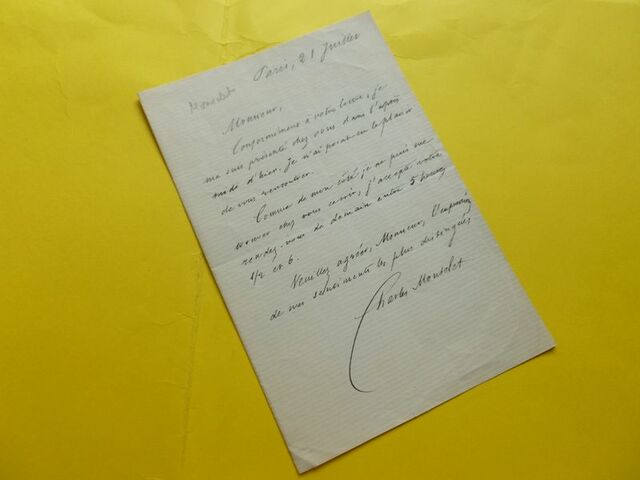 Paris, 21 Juillet
Monselet
Monsieur,
Conformément à votre lettre, je
me suis présenté chez vous dans l'après
midi d'hier. Je n'ai point eu le plaisir
de vous rencontrer.
Comme de mon côté je ne puis me
trouver chez vous ce soir, j'accepte votre
rendez-vous de demain entre 5 heures
1/2 et 6.
Veuillez agréer, Monsieur, l'expression
de mes sentiments les plus distingués
Charles Monselet